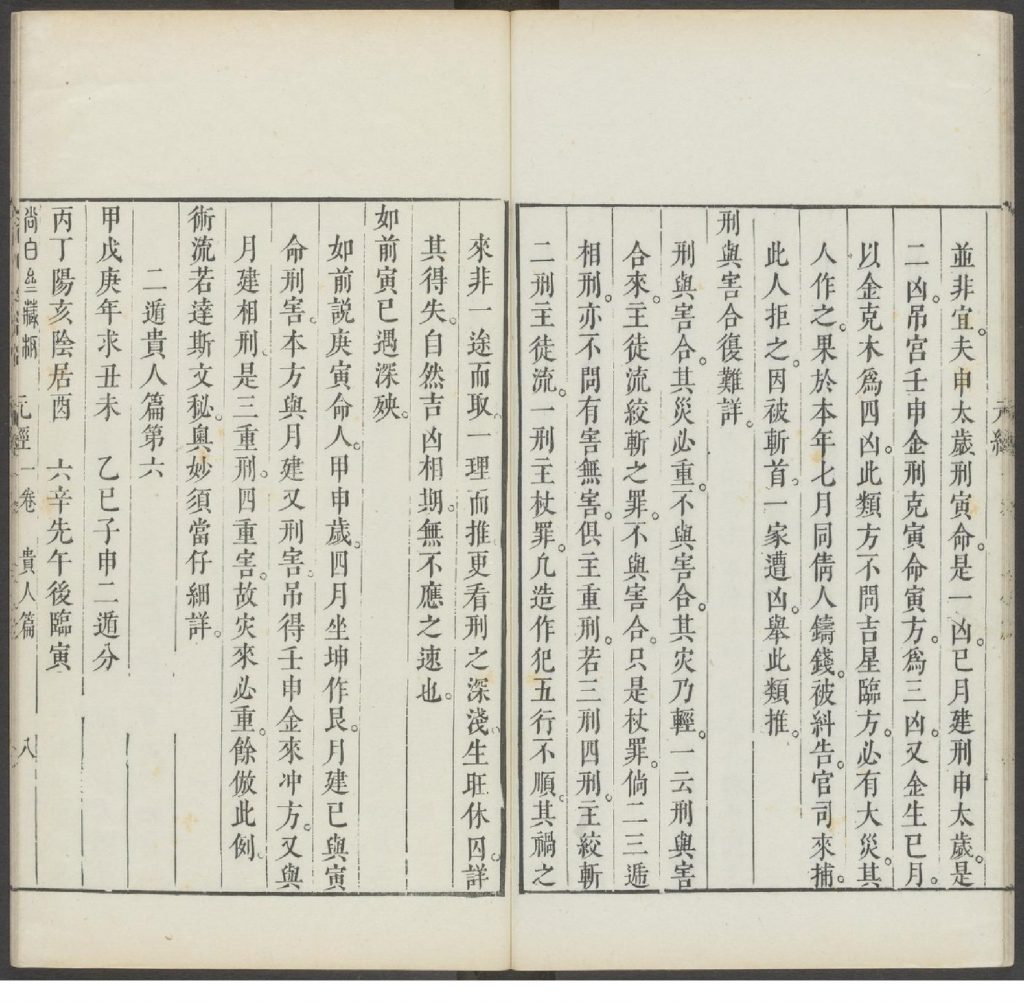 並非宜。夫申太歲刑寅命。是一凶。巳月建刑申太歲。是
二凶。吊宮壬申金刑克寅命寅方。為三凶。又金生巳月。
以金克木為四凶。此類方不問吉星臨方。必有大災。其
人作之。果於本年七月同倩人鑄錢。被糾告。官司來捕。
此人拒之。因被斬首。一家遭凶。舉此類推。
刑與害合復難詳。
刑與害合。其災必重。不與害合。其灾乃輕。一云刑與害
合來。主徒流絞斬之罪。不與害合。只是杖罪。倘二三遁
相刑。亦不問有害無害。俱主重刑。若三刑四刑。主絞斬
二刑主徒流。一刑主杖罪。凢造作犯五行不順。其禍之
來非一途而取。一理而推。更看刑之深淺。生旺休囚。詳
其得失。自然吉凶相期。無不應之速也。
如前寅巳遇深殃。
如前説庚寅命人。甲申歲。四月坐坤作艮。月建巳與寅
命刑害。本方與月建又刑害。吊得壬申金來冲方。又與
月建相刑。是三重刑。四重害。故灾來必重。餘倣此例。
術流若達斯文秘。奧妙須當仔細詳。
二遁貴人篇第六
甲戊庚年求丑未 乙巳子申二遁分
丙丁陽亥陰居酉 六辛先午後臨寅
尚白齋藏板 元經一卷 貴人篇 八